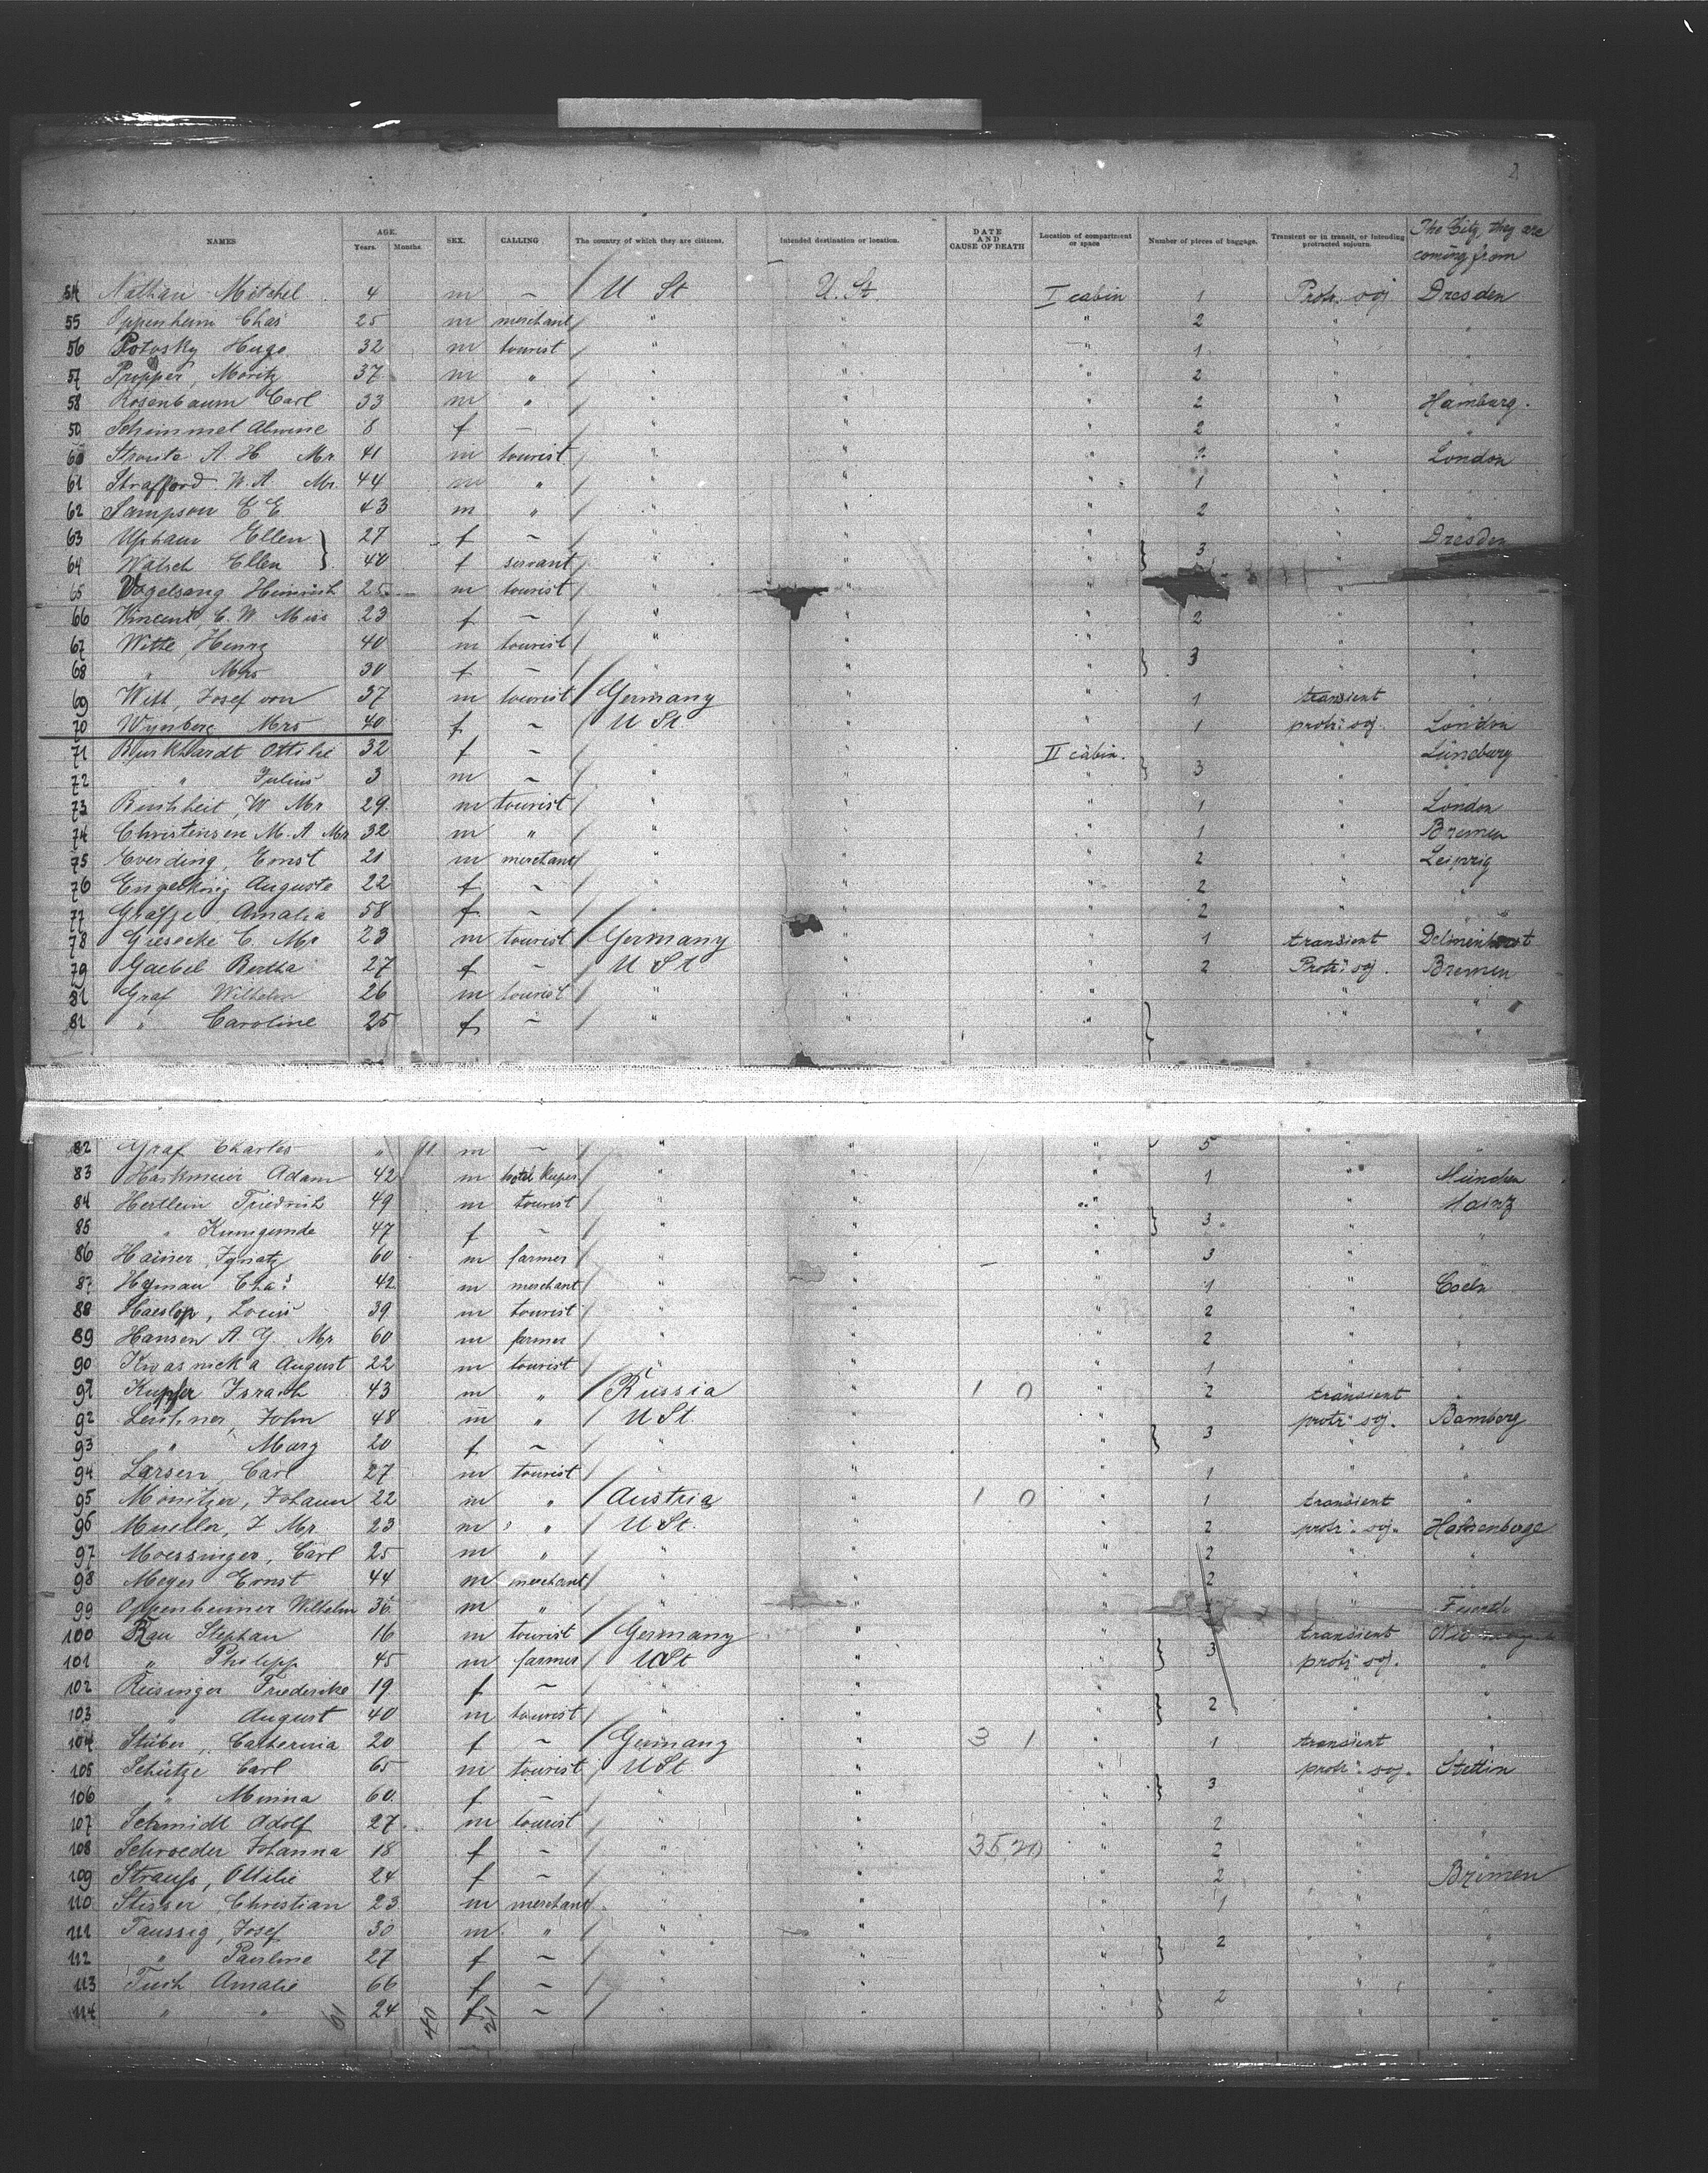 2
NAMES AGE. Years. Months. SEX. CALLING The country of which they are citizens. Intended destination or location. DATE AND CAUSE OF DEATH Location of compartment or space Number of pieces of baggage. Transient or in transit, or intending protracted sojourn. The City they are coming from
54 Nathan Mitchel 4 m — / U St U. St. I cabin 1 Protr. soj Dresden
55 Oppenheim Chas 25 m merchant / " " " 2 " "
56 Potosky Hugo 32 m tourist / " " " 1 " "
57 Propper, Moritz 37 m " / " " " 2 "
58 Rosenbaum Carl 33 m " / " " " 2 " Hamburg.
59 Schimmel Alwine 8 f — / " " " 2 " "
60 Stroute A. H. Mr. 41 m tourist / " " " 1 " London
61 Strafford W. A. Mr. 44 m " / " " " 1 " "
62 Sampson E E 43 m " / " " " 2 " "
63 Upham Ellen } 27 f — / " " " } 3 " Dresden
64 Walsch Ellen } 40 f servant / " " " "
65 Vogelsang Heinrich 25 m tourist / " " " "
66 Vincent, C. W. Miss 23 f — / " " " 2 " "
67 Witte, Henry 40 m tourist / " " " } 3 " "
68 " Mrs 30 f — / " " " " "
69 Witt, Josef von 37 m tourist / Germany " " 1 transient "
70 Wynberg Mrs 40 f — / U St. " " 1 protr: soj. London
71 Burkhardt Ottilie 32 f — / " " II cabin. } 3 " Lüneburg
72 " Julius 3 m — / " " " " "
73 Buchheit, W Mr 29 m tourist / " " " 1 " London
74 Christensen M. A. Mr 32 m " / " " " 1 " Bremen
75 Everding, Ernst 21 m merchant / " " " 2 " Leipzig
76 Engelking Auguste 22 f — / " " " 2 " "
77 Gräfje, Amalia 58 f — / " " " 2 " "
78 Giesecke C. Mr 23 m tourist / Germany " " 1 transient Delmenhorst
79 Gaebel Bertha 27 f — / U St " " 2 Protr: soj. Bremen
81 Graf Wilhelm 26 m tourist / " " " " "
81 " Caroline 25 f — / " " " } " "
82 Graf Charles " 11 m — / " " " 5 " "
83 Harkmeier Adam 42 m hotel keeper / " " " 1 " München
84 Hertlein Friedrich 49 m tourist / " " " } 3 " Mainz
85 " Kunigunde 47 f — / " " " " "
86 Hainer, Ignatz 60 m farmer / " " " 3 " "
87 Hyman Chas 42 m merchant / " " " 1 " Coeln
88 Haeslop, Louis 39 m tourist / " " " 2 " "
89 Hansen A. G. Mr. 60 m farmer / " " " 2 " "
90 Kwasnicka August 22 m tourist / " " " 1 " "
91 Kupfer Israch 43 m " / Russia " 1 0 " 2 transient "
92 Leutner, John 48 m " / U St. " " } 3 protr: soj. Bamberg
93 " Marg 20 f — / " " " " "
94 Larsen, Carl 27 m tourist / " " " 1 " "
95 Mönitzer, Johann 22 m " / Austria " 1 0 " 1 transient "
96 Mueller, J Mr. 23 m " / U St. " " 2 protr: soj.
97 Moessinger, Carl 25 m " / " " " 2 " "
98 Meyer Ernst 44 m merchant / " " " 2 " "
99 Oppenheimer Wilhelm 36 m " / " " " " Fuerth
100 Rau Stephan 16 m tourist / Germany " " } 3 transient
101 " Philipp 45 m farmer / U St " " protr: soj. "
102 Reisinger Friederike 19 f — / " " " } 2 " "
103 " August 40 m tourist / " " " " "
104 Stüber, Catherina 20 f — / Germany " 3 1 " 1 transient "
105 Schütze Carl 65 m tourist / U St " " } 3 protr: soj. Stettin
106 " Minna 60 f — / " " " " "
107 Schmidt Adolf 27 m tourist / " " " 2 " "
108 Schroeder Johanna 18 f — / " " 35,20 " 2 " "
109 Strauss, Ottilie 24 f — / " " " 2 " Bremen
110 Stisser, Christian 23 m merchant / " " " 1 " "
111 Taussig, Josef 30 m " / " " " } 2 " "
112 " Pauline 27 f — / " " " " "
113 Tuch Amalie 66 f — / " " " } 2 " "
114 " " 24 f — / " " " " "
61 40 21